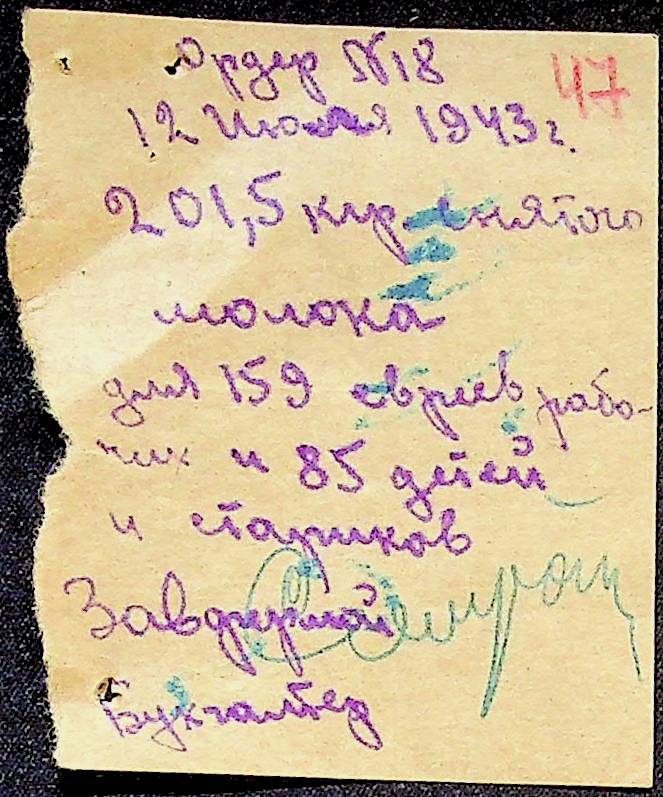 Ордер №18
47
12 Июля 1943 г.
201,5 кгр снятого
молока
для 159 евреев рабо-
чих и 85 детей
и стариков
Завфермой
Бухгалтер